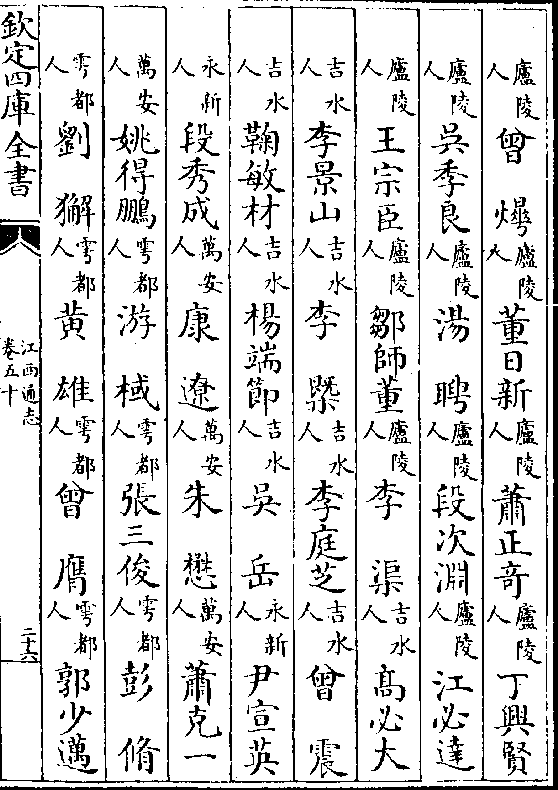 廬陵人曾燁廬陵人董日新廬陵人蕭正竒廬陵人丁興賢
廬陵人吳季良廬陵人湯聘廬陵人段次淵廬陵人江必達
廬陵人王宗臣廬陵人鄒師董廬陵人李渠吉水人髙必大
吉水人李景山吉水人李槩吉水人李庭芝吉水人曾震
吉水人鞠敏材吉水人楊端節吉水人吳岳永新人尹宣英
永新人段秀成萬安人康遼萬安人朱懋萬安人蕭克一
萬安人姚得鵬雩都人游棫雩都人張三俊雩都人彭脩
雩都人劉獬雩都人黄雄雩都人曾膺雩都人郭少邁
欽定四庫全書
江西通志
卷五十
二十六